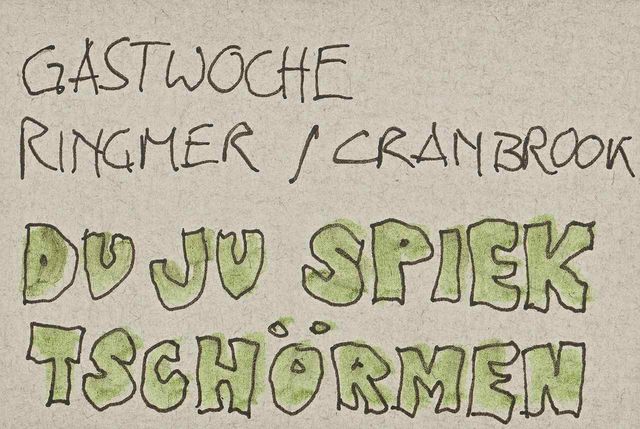 GASTWOCHE
RINGMER / CRANBROOK
DU JU SPIEK
TSCHÖRMEN